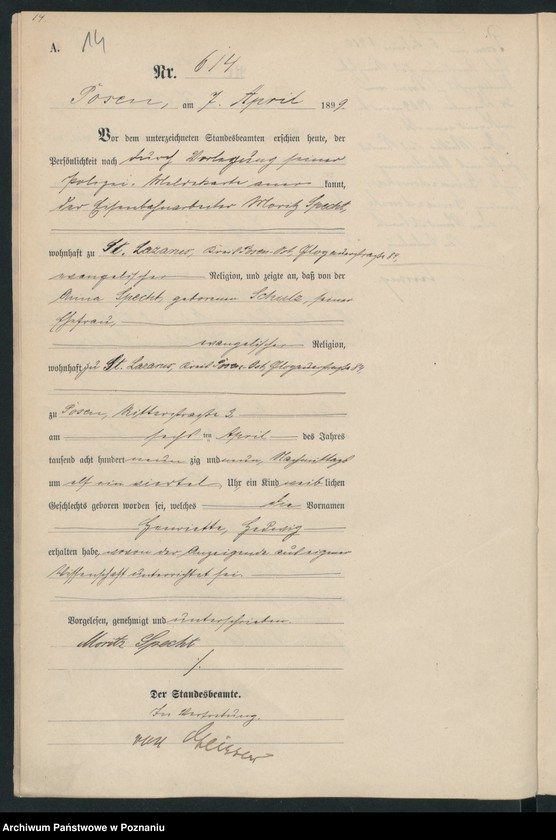 14.
A. 14
Nr. 614
Posen, am 7. April 1899.
Vor dem unterzeichneten Standesbeamten erschien heute, der
Persönlichkeit nach durch Vorlegung seiner
Polizei-Meldekarte aner kannt,
der Eisenbahnarbeiter Moritz Specht,
wohnhaft zu St. Lazarus, Kreis Posen-Ost, Glogauerstraße
evangelischer Religion, und zeigte an, daß von der
Anna Specht, geborenen Schulz, seiner
Ehefrau,
evangelischer Religion,
wohnhaft zu St. Lazarus, Kreis Posen-Ost, Glogauerstraße
zu Posen, Ritterstraße 2
am sechs ten April des Jahres
tausend acht hundert neun zig und neun, Nachmittags
um elf ein viertel Uhr ein Kind weib lichen
Geschlechts geboren worden sei, welches die Vornamen
Henriette, Hedwig
erhalten habe, wovon der Anzeigende aus eigener
Wissenschaft unterrichtet sei.
Vorgelesen, genehmigt und unterschrieben.
Moritz Specht
Der Standesbeamte.
In Vertretung.
von
Archiwum Państwowe w Poznaniu